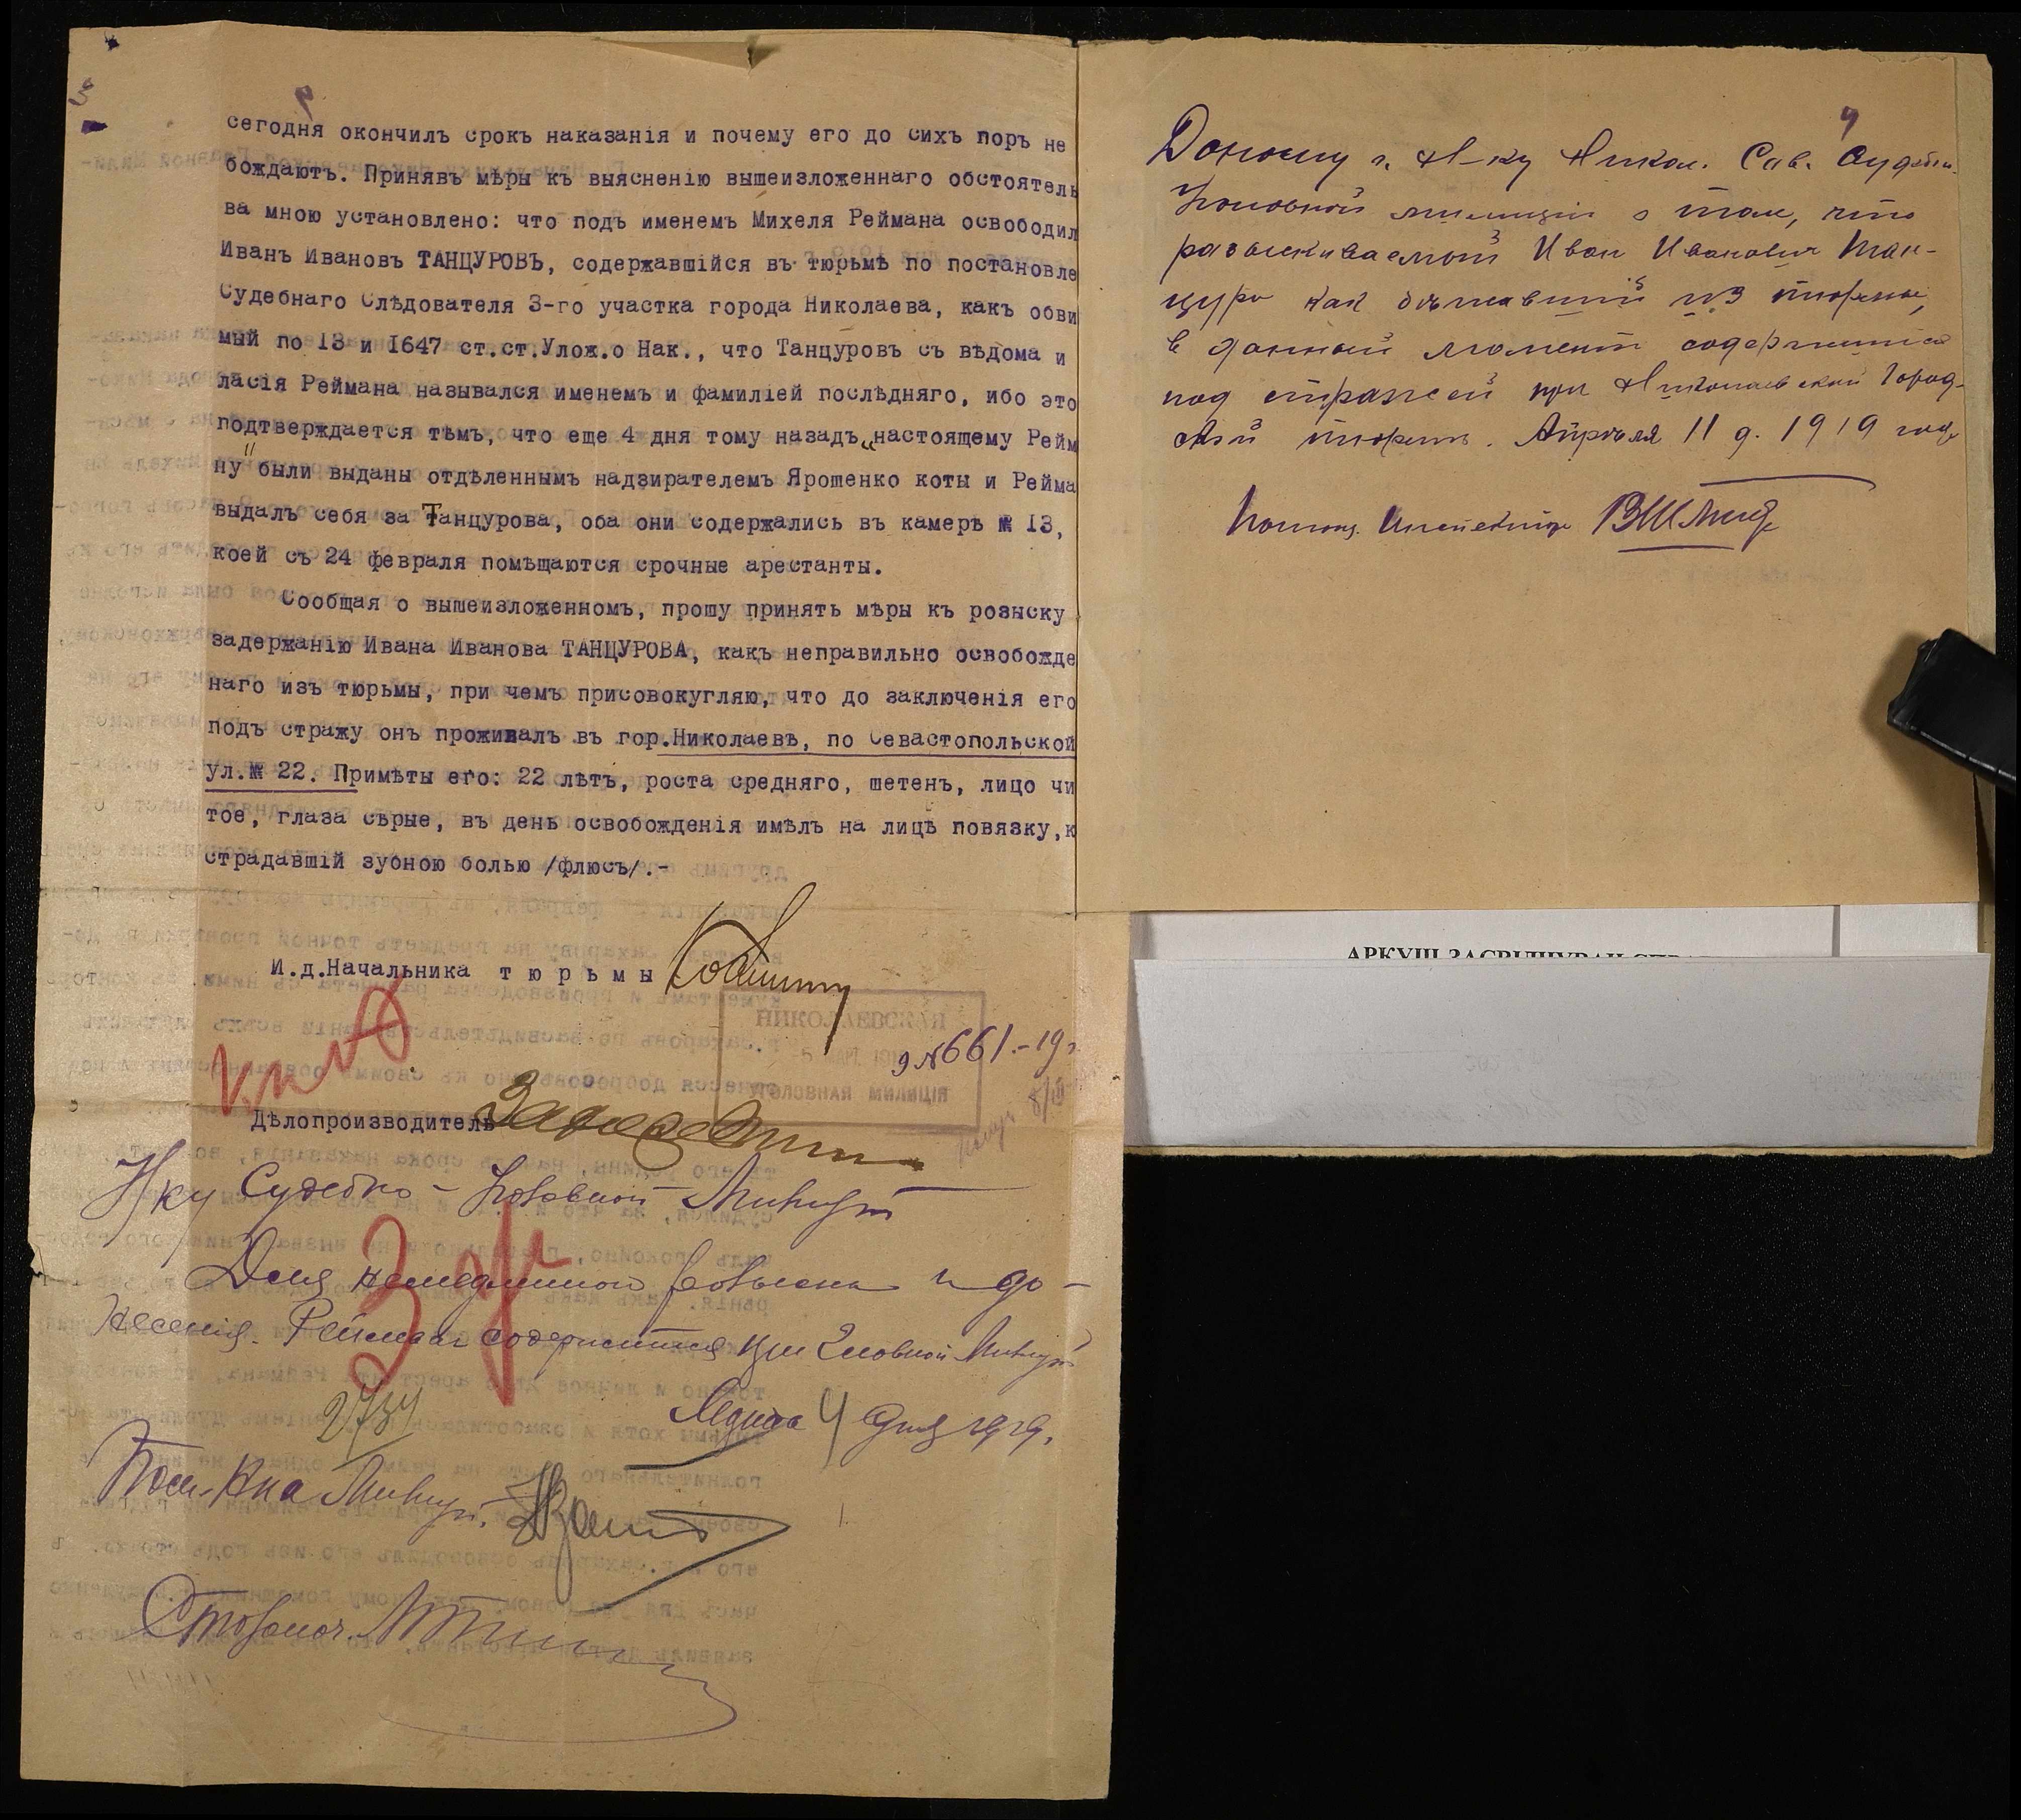 3
сегодня окончилъ срокъ наказанія и почему его до сихъ поръ не
бождаютъ. Принявъ мѣры къ выясненію вышеизложеннаго обстоятель
ва мною установлено: что подъ именемъ Михеля Реймана освободил
Иванъ Ивановъ ТАНЦУРОВЪ, содержавшійся въ тюрьмѣ по постановле
Судебнаго Слѣдователя 3-го участка города Николаева, какъ обви
мый по 13 и 1647 ст.ст.Улож.о Нак., что Танцуровъ съ вѣдома и
ласія Реймана назывался именемъ и фамиліей послѣдняго, ибо это
подтверждается тѣмъ, что еще 4 дня тому назадъ „настоящему Рейм
ну" были выданы отдѣленнымъ надзирателемъ Ярошенко коты и Рейма
выдалъ себя за Танцурова, оба они содержались въ камерѣ № 13,
коей съ 24 февраля помѣщаются срочные арестанты.
Сообщая о вышеизложенномъ, прошу принять мѣры къ розыску
задержанію Ивана Иванова ТАНЦУРОВА, какъ неправильно освобожде
наго изъ тюрьмы, при чемъ присовокугляю, что до заключенія его
подъ стражу онъ проживалъ въ гор.Николаевѣ, по Севастопольской
ул.№ 22. Примѣты его: 22 лѣтъ, роста средняго, шетенъ, лицо чи
тое, глаза сѣрые, въ день освобожденія имѣлъ на лицѣ повязку,к
страдавшій зубною болью /флюсъ/.-
И.д.Начальника т ю р ь м ы
НИКОЛАЕВСКАЯ
УГОЛОВНАЯ МИЛИЦІЯ
№661.-19г
Дѣлопроизводитель
Нку Судебно-Уголовной Милиціи
Для немедленного розыска и до-
несенія. Рейман содержится при Уголовной Милиціи
Марта 4 дня 1919.
2734
Пом. Нка Милиціи.
4
Доношу г. Н-ку Никол. Сов. Судебн.
Уголовной милиціи о том, что
разыскиваемый Иван Иванович Тан-
цура как бѣжавший из тюрьмы,
в данный момент содержится
под стражей при Николаевской Город-
ской тюрьмѣ. Апрѣля 11 д. 1919 года
Помощ. Инспектора
АРКУШ ЗАСВІДЧУВАН